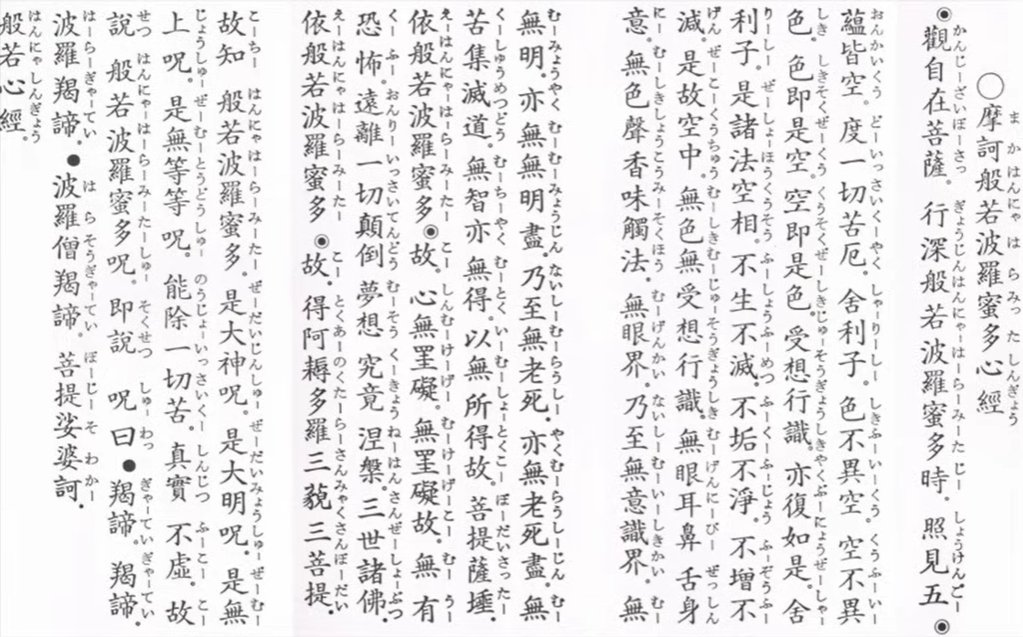 ま か はんにゃ は ら みった しんぎょう
〇摩訶般若波羅蜜多心經
かんじーざいぼーさっ ぎょうじんはんにゃーはーらーみーたーじー しょうけんごー
◉觀自在菩薩。行深般若波羅蜜多時。照見五◉
おんかいくう どーいっさいくーやく しゃーりーしー しきふーいーくう くうふーいー
蘊皆空。度一切苦厄。舍利子。色不異空。空不異
しき しきそくぜーくう くうそくぜーしき じゅーそうぎょうしき やくぶーにょうぜーしゃー
色。色即是空。空即是色。受想行識。亦復如是。舍
りーしー ぜーしょーほうくうそう ふーしょうふーめつ ふーくーふーじょう ふーぞうふー
利子。是諸法空相。不生不滅。不垢不淨。不增不
げん ぜーこーくうちゅう むーしきむーじゅーそうぎょうしき むーげんにーびー ぜっしん
減。是故空中。無色無受想行識。無眼耳鼻 舌身
にー むーしきしょうこうみーそくほう むーげんかい ないしーむーいーしきかい むー
意。無色聲香味觸法。無眼界。乃至無意識界。無
むーみょうやく むーむーみょうじん ないしーむーらうしー やくむーらうしーじん むー
無明。亦無無明盡。乃至無老死。亦無老死盡。無
くーしゅうめつどう むーちーやく むーとく いーむーしょーとくこー ぼーだいさったー
苦集滅道。無智亦無得。以無所得故 菩提薩埵。
えーはんにゃーはーらーみーたー こー しんむーけーげー むーけーげーこー むーうー
依般若波羅蜜多◉故。心無罣礙。無罣礙故。無有
くーふー おんりーいっさいてんどう むーそう くーきょう ねーはん さんぜーしょーぶつ
恐怖。遠離一切顛倒夢想 究竟涅槃。三世諸佛。
えーはんにゃーはーらーみーたー こー とくあーのくたーらーさんみゃくさんぼーだい
依般若波羅蜜多◉故。得阿耨多羅三藐三菩提。
こーちー はんにゃ はーらーみーたー ぜーだいじんしゅー ぜーだいみょうしゅー ぜーむー
故知 般若波羅蜜多。是大神呪。是大明呪。是無
じょうしゅー ぜーむーとうどうしゅー のうじょーいっさいくー しんじつ ふーこー こー
上呪。是無等等呪。能除一切苦。真實 不虛。故
せつ はんにゃーはーらーみーたーしゅー そくせつ しゅーわっ ぎゃーてい ぎゃーてい
說 般若波羅蜜多呪。即說 呪曰●羯諦。羯諦。
はーらーぎゃーてい は ら そうぎゃーてい ぼーじー そ わかー
波羅羯諦。●波羅僧羯諦。菩提娑婆訶.
はんにゃしんぎょう
般若心經。